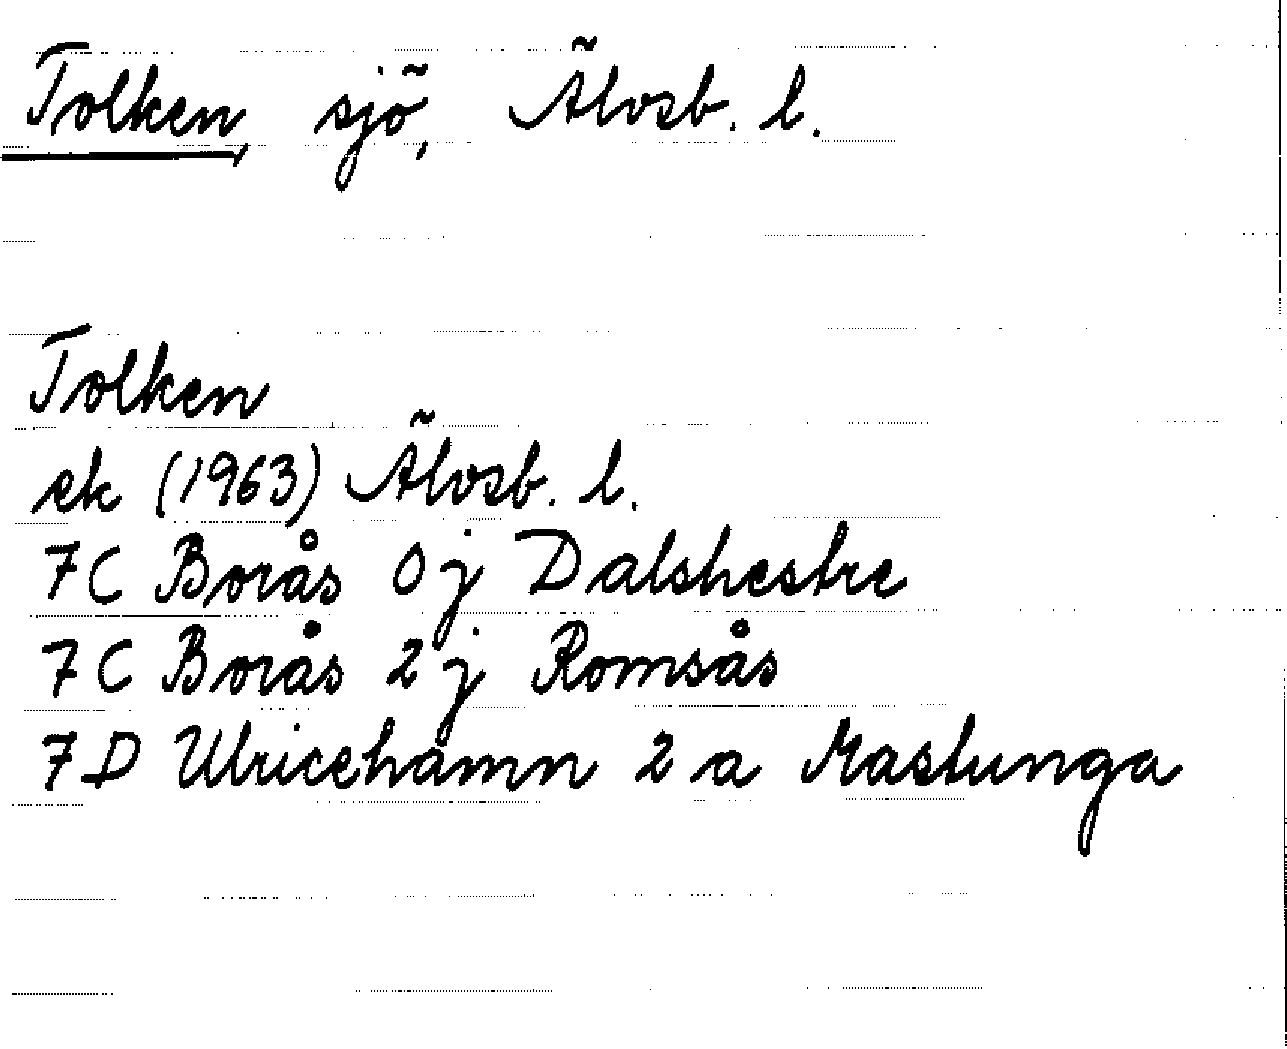 Tolken, sjö, Älvsb. l.
Tolken
ek (1963) Älvsb. l.
7C Borås 0j Dalshestre
7C Borås 2j Romsås
7D Ulricehamn 2a Mastunga